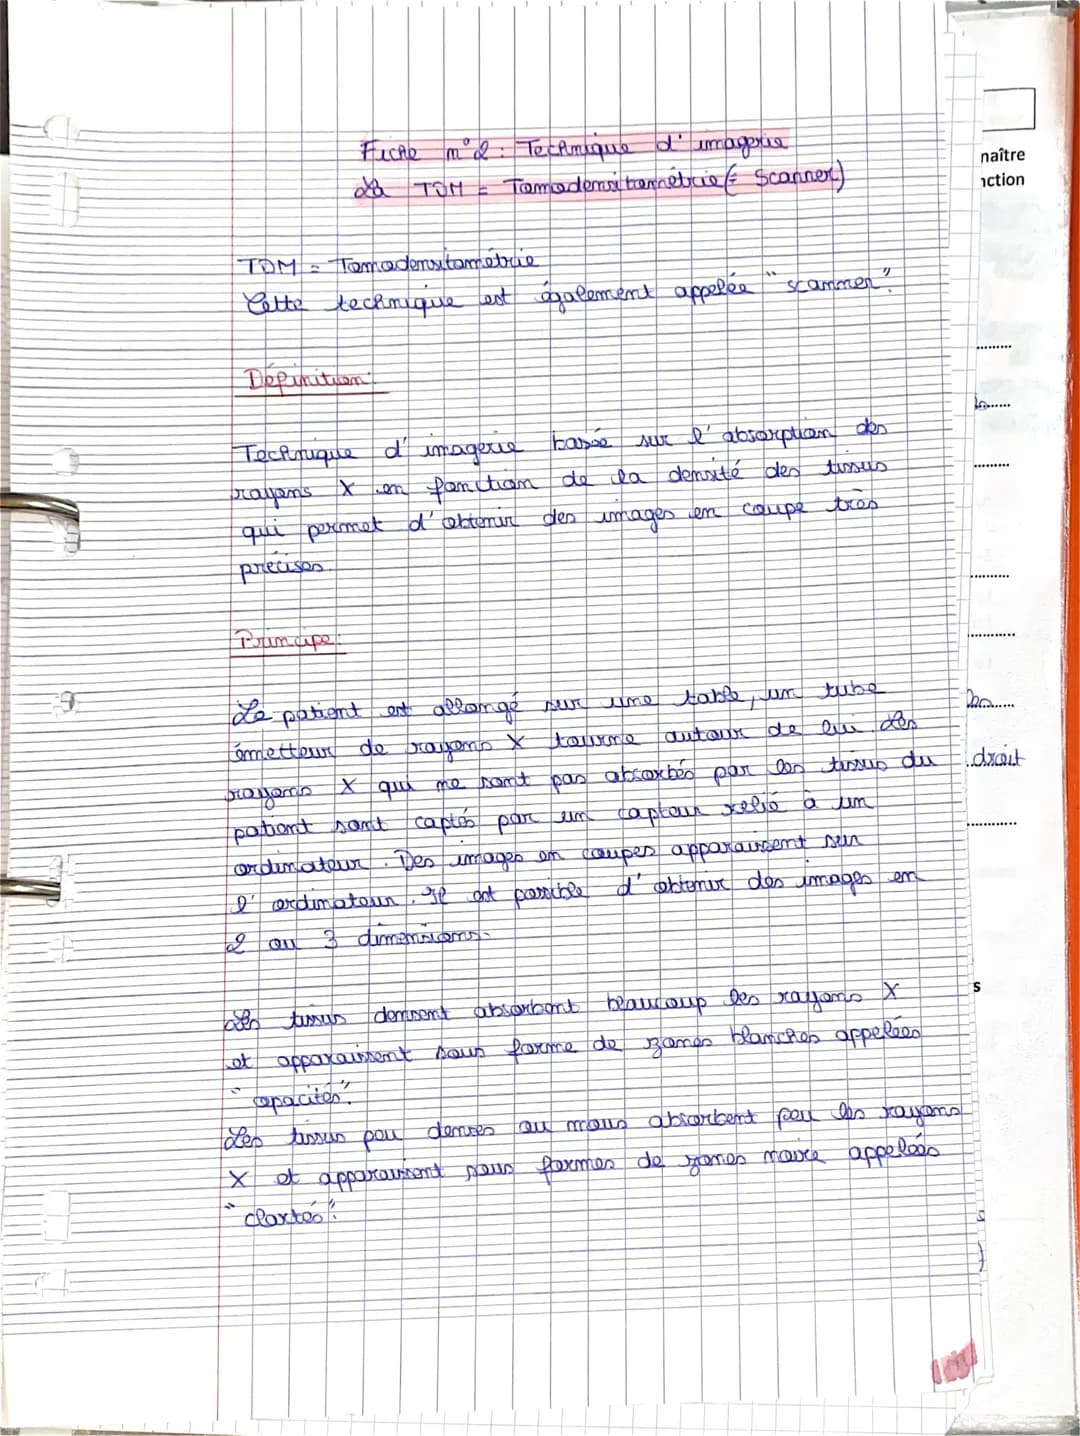 Fiche n°2 : Technique d'imagerie
La TDM = Tomodensitométrie (= Scanner)
TDM = Tomodensitométrie
Cette technique est également appelée "scanner".
Définition :
Technique d'imagerie basée sur l'absorption des
rayons X en fonction de la densité des tissus
qui permet d'obtenir des images en coupe très
précises.
Principe :
Le patient est allongé sur une table, un tube
émetteur de rayons X tourne autour de lui. Les
rayons X qui ne sont pas absorbés par les tissus du
patient sont captés par un capteur relié à un
ordinateur. Des images en coupes apparaissent sur
l'ordinateur. Il est possible d'obtenir des images en
2 ou 3 dimensions.
Les tissus densent absorbent beaucoup les rayons X
et apparaissent sous forme de zones blanches appelées
"opacités".
Les tissus peu denses ou mous absorbent peu les rayons
X et apparaissent sous formes de zones noire appelées
"clartés".
naître
nction
droit
s